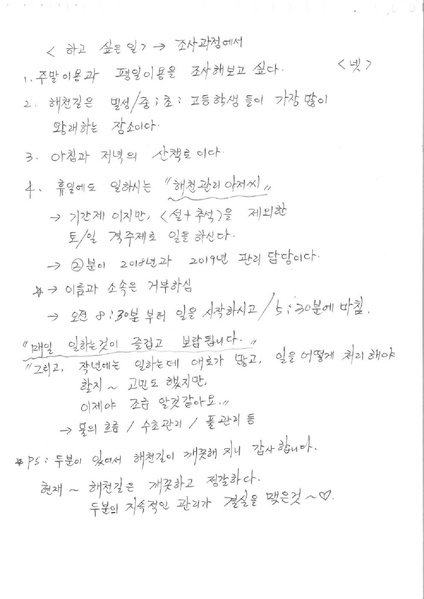 < 하고 싶은 일 > → 조사과정에서
1. 주말이용과 평일이용을 조사해보고 싶다. <넷>
2. 해천길은 밀성/중; 초; 고등학생 들이 가장 많이
왕래하는 장소이다.
3. 아침과 저녁의 산책로이다.
4. 휴일에도 일하시는 "해천관리아저씨"
→ 기간제 이지만, <설+추석>을 제외한
토/일 격주제로 일을 하신다.
→ ②분이 2018년과 2019년 관리 담당이다.
☆→ 이름과 소속은 거부하심
→ 오전 8:30분 부터 일을 시작하시고 / 5:30분에 마침.
"매일 일하는것이 즐겁고 보람됩니다."
"그리고, 작년에는 일하는데 애로가 많고, 일을 어떻게 처리 해야
할지~ 고민도 했지만,
이제야 조금 알것같아요."
→ 물의 흐름 / 수초관리 / 풀관리 등
☆PS: 두분이 있어서 해천길이 깨끗해 지니 감사합니다.
현재~ 해천길은 깨끗하고 정갈하다.
두분의 지속적인 관리가 결실을 맺은것~♡.